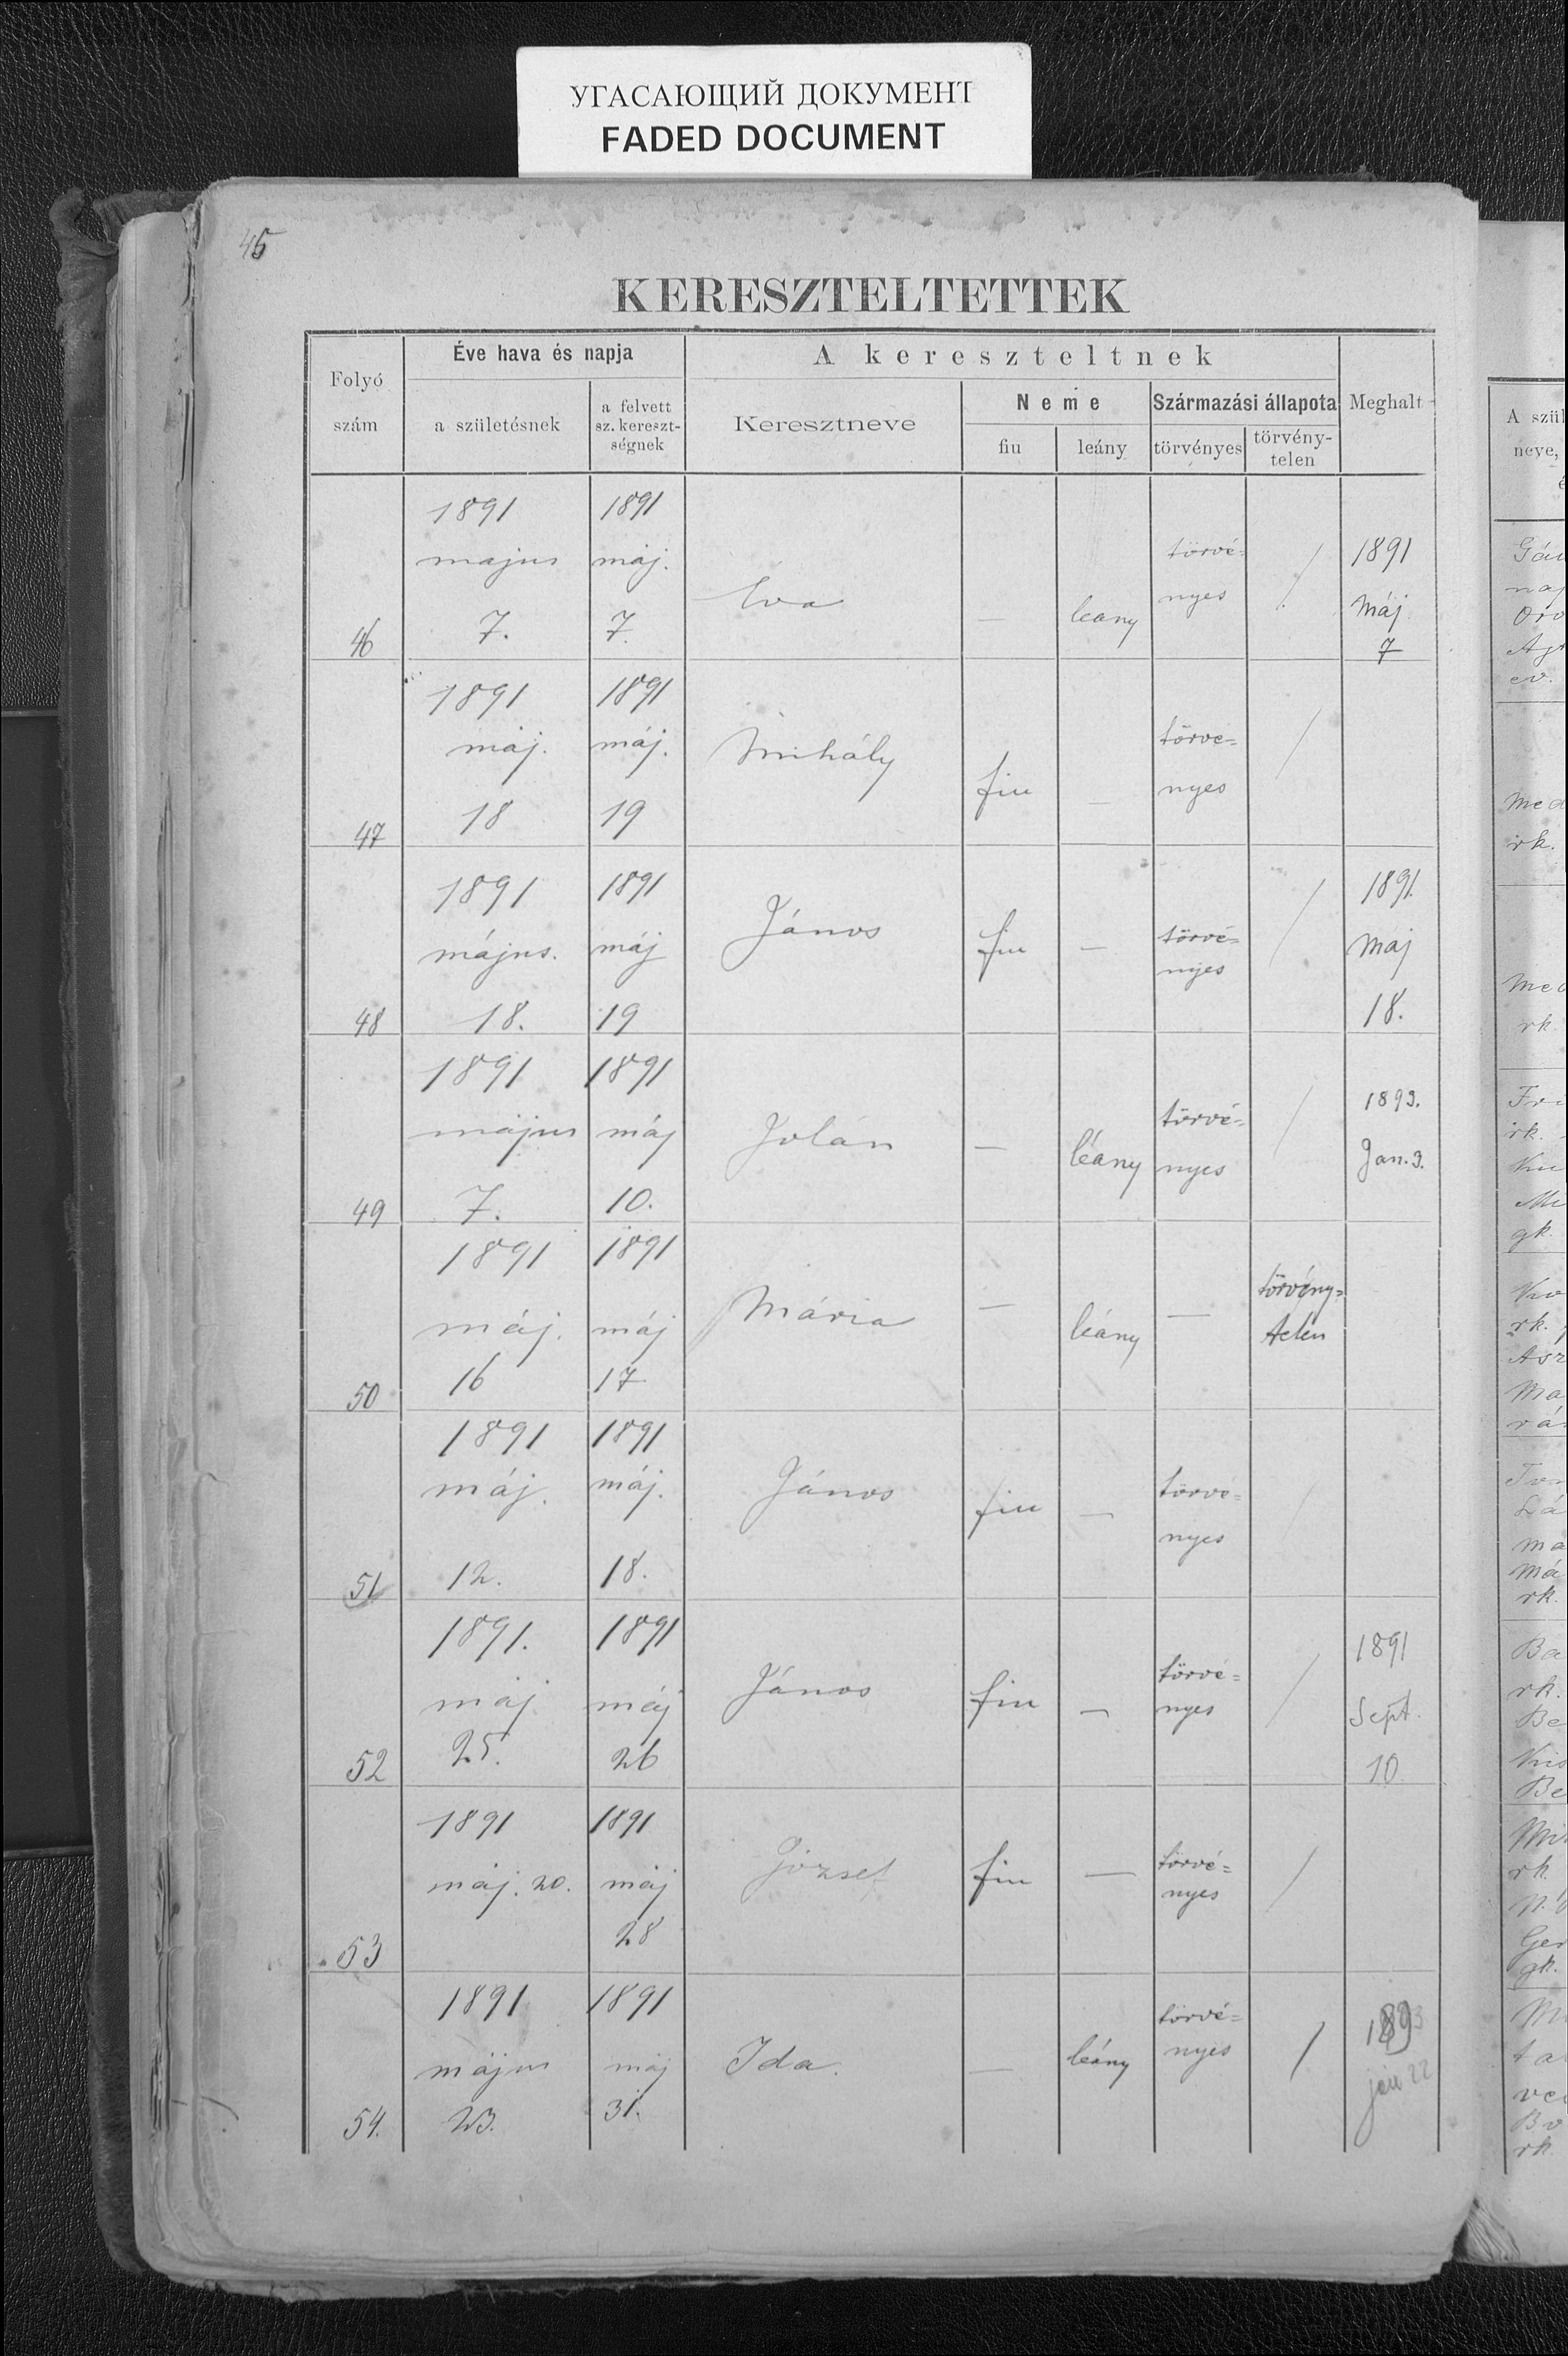 УГАСАЮЩИЙ ДОКУМЕНТ
FADED DOCUMENT
45
KERESZTELTETTEK
Folyó szám
Éve hava és napja
a születésnek
a felvett sz. kereszt-ségnek
A kereszteltnek
Keresztneve
Neme
fiu
leány
Származási állapota
törvényes
törvény-telen
Meghalt
46 1891 majus 7. 1891 máj. 7. Éva — leany törvé=nyes / 1891 Máj 7
47 1891 máj. 18 1891 máj. 19 Mihály fiu — törvé=nyes /
48 1891 május. 18. 1891 máj 19 János fiu — törvé=nyes / 1891. Maj 18.
49 1891 május 7. 1891 máj 10. Jolán — leány törvé=nyes / 1893. Jan. 3.
50 1891 máj. 16 1891 máj 17 Mária — leány — törvény=telen
51 1891 máj. 12. 1891 máj. 18. János fiu — törvé=nyes /
52 1891. maj 25. 1891 máj 26 János fiu — törvé=nyes / 1891 Sept. 10.
53 1891 máj. 20. 1891 máj 28 József fiu — törvé=nyes /
54. 1891 május 23. 1891 máj 31. Ida. — leány törvé=nyes /
A szül
neve,
rk.
rk
rk.
gk.
rk.
rk.
rk.
rk.
gk.
rk.